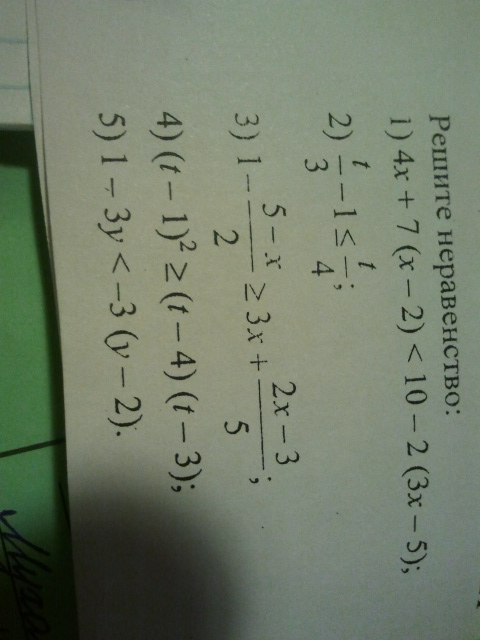 Решите неравенство:
1) 4x + 7 (x − 2) < 10 − 2 (3x − 5);
2) t/3 − 1 ≤ t/4;
3) 1 − (5 − x)/2 ≥ 3x + (2x − 3)/5;
4) (t − 1)² ≥ (t − 4) (t − 3);
5) 1 − 3y < −3 (y − 2).